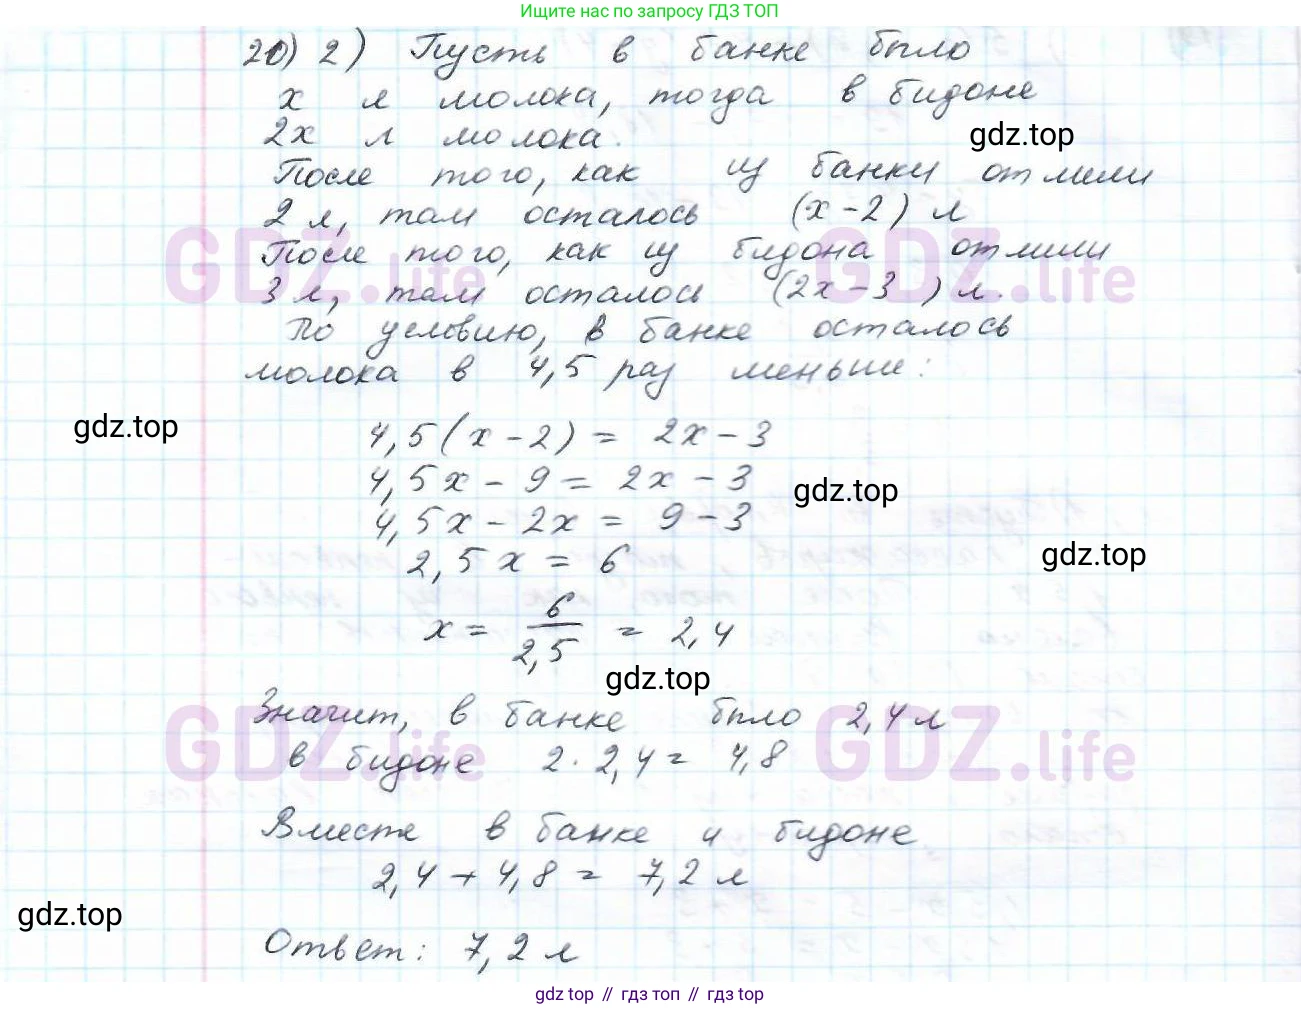 Ищите нас по запросу ГДЗ ТОП
20) 2) Пусть в банке было
x л молока, тогда в бидоне
2x л молока.
gdz.top
После того, как из банки отлили
2 л, там осталось (x-2) л
После того, как из бидона отлили
3 л, там осталось (2x-3) л.
GDZ.life GDZ.life
По условию, в банке осталось
молока в 4,5 раз меньше:
gdz.top
4,5(x-2) = 2x-3
4,5x - 9 = 2x - 3
gdz.top
4,5x - 2x = 9-3
2,5x = 6
gdz.top
x = 6/2,5 = 2,4
gdz.top
Значит, в банке было 2,4 л
в бидоне 2·2,4 = 4,8
GDZ.life GDZ.life
Вместе в банке и бидоне
2,4 + 4,8 = 7,2 л
gdz.top
Ответ: 7,2 л
gdz top // гдз топ // гдз top